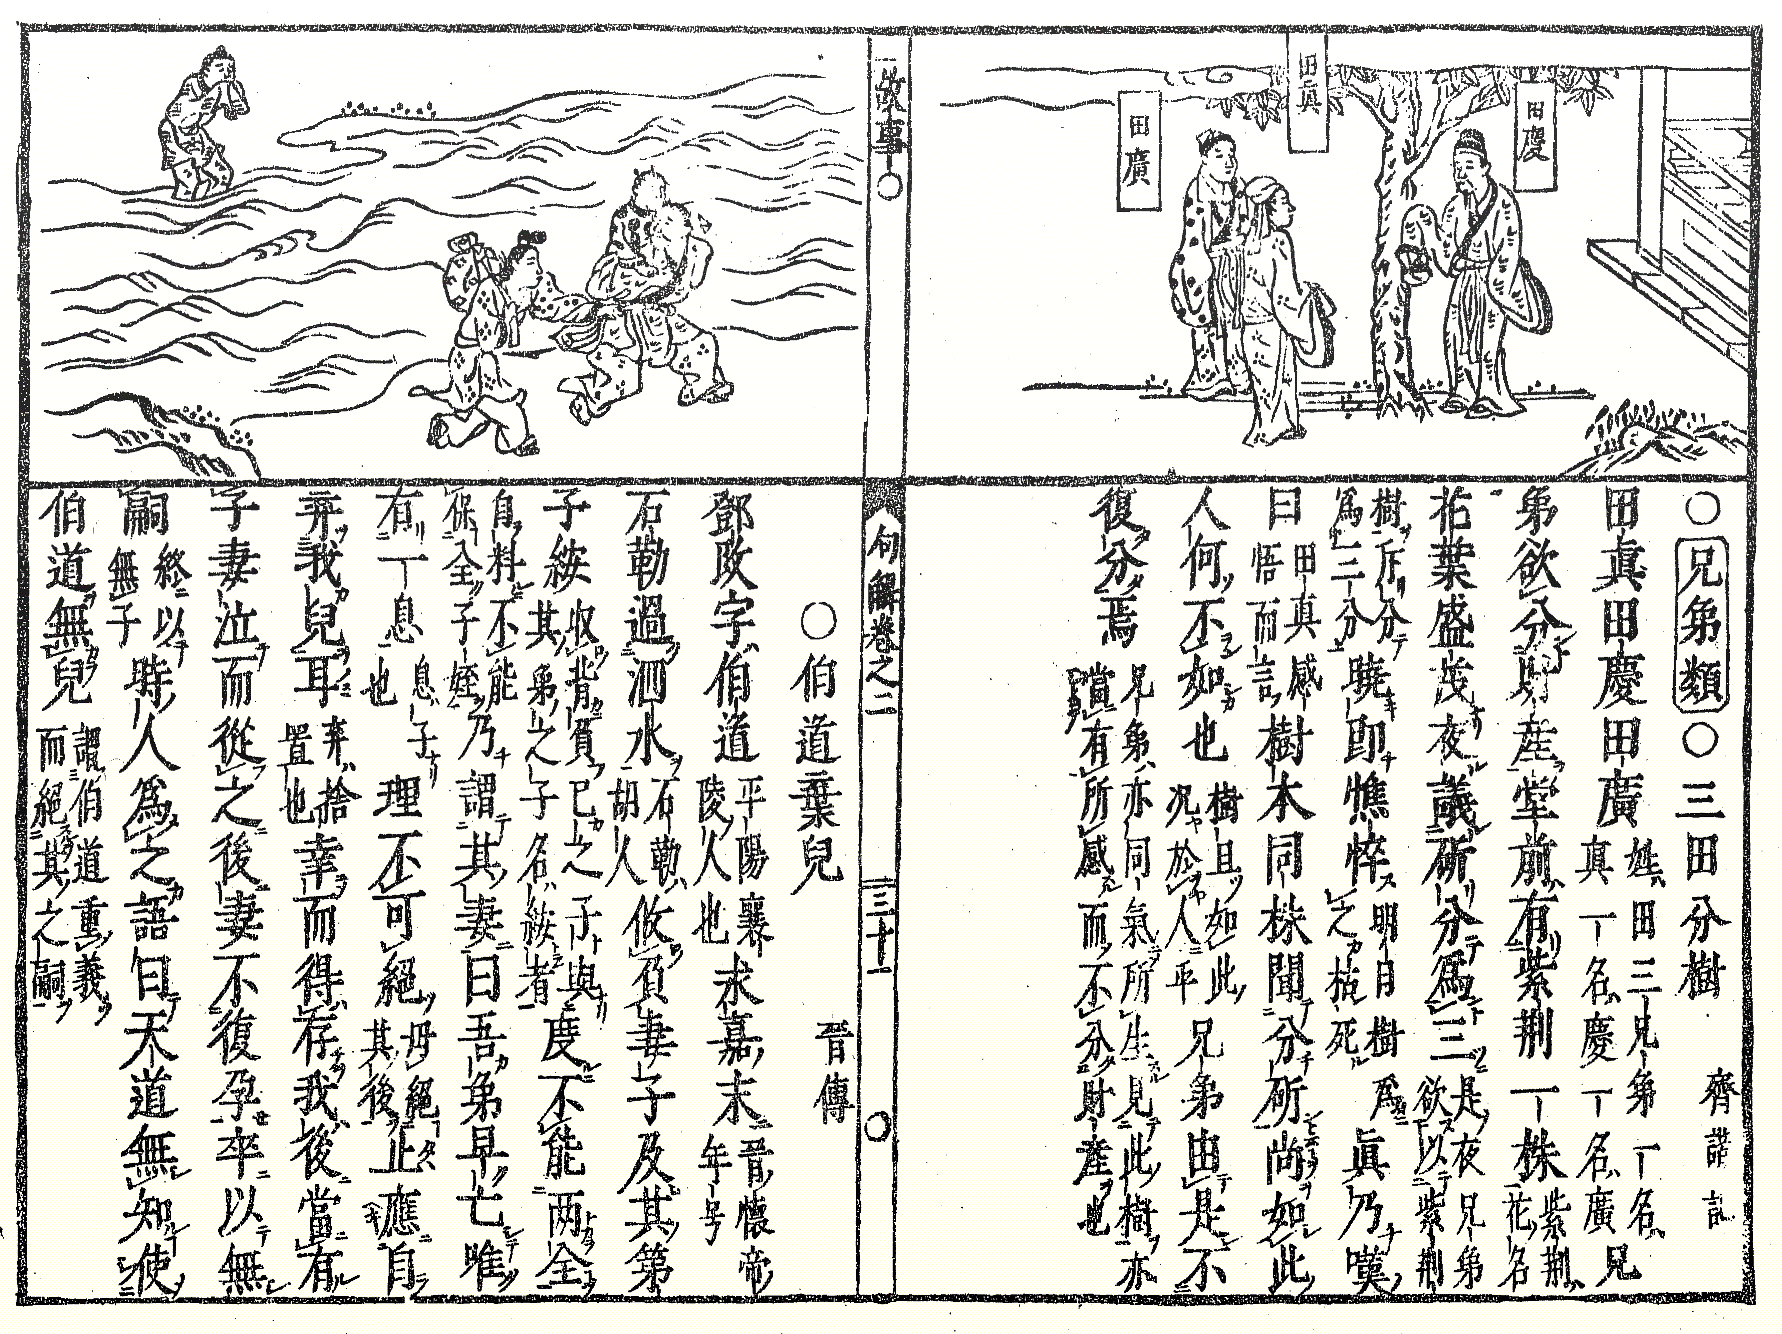 田慶
田眞
田廣
○兄弟類○三田分樹 齊諧記
田眞田慶田廣姓田三兄弟一名真一名慶一名廣兄
弟欲分財産堂前有紫荆一株紫荆花名
枯葉盛茂夜議斫分爲三是夜兄弟欲以紫荆
樹斫分爲三分曉即憔悴明日樹之枯死爲眞乃嘆
曰田真感悟而言樹木同株聞分斫尚如此
人何不如也樹且如此况於人乎兄弟由是不
復分焉兄弟亦同氣所生見此樹亦當有所感而不分財産也
故事 句解卷之二 三十一
○伯道棄兒 晉傳
鄧攸字伯道平陽襄陵人也永嘉末晉懷帝年号
石勒過泗水石勒胡人攸負妻子及其弟
子綏收背負已之子與其弟之子名綏者度不能两全
自料不能保全子姪乃謂其妻曰吾弟早亡唯
有一息息子也理不可絕毋絕其後止應自
弃我兒耳弃捨置也幸而得存我後當有
子妻泣而從之後妻不復孕卒以無
嗣終以無子時人爲之語曰天道無知使
伯道無兒謂伯道重義而絕其之嗣